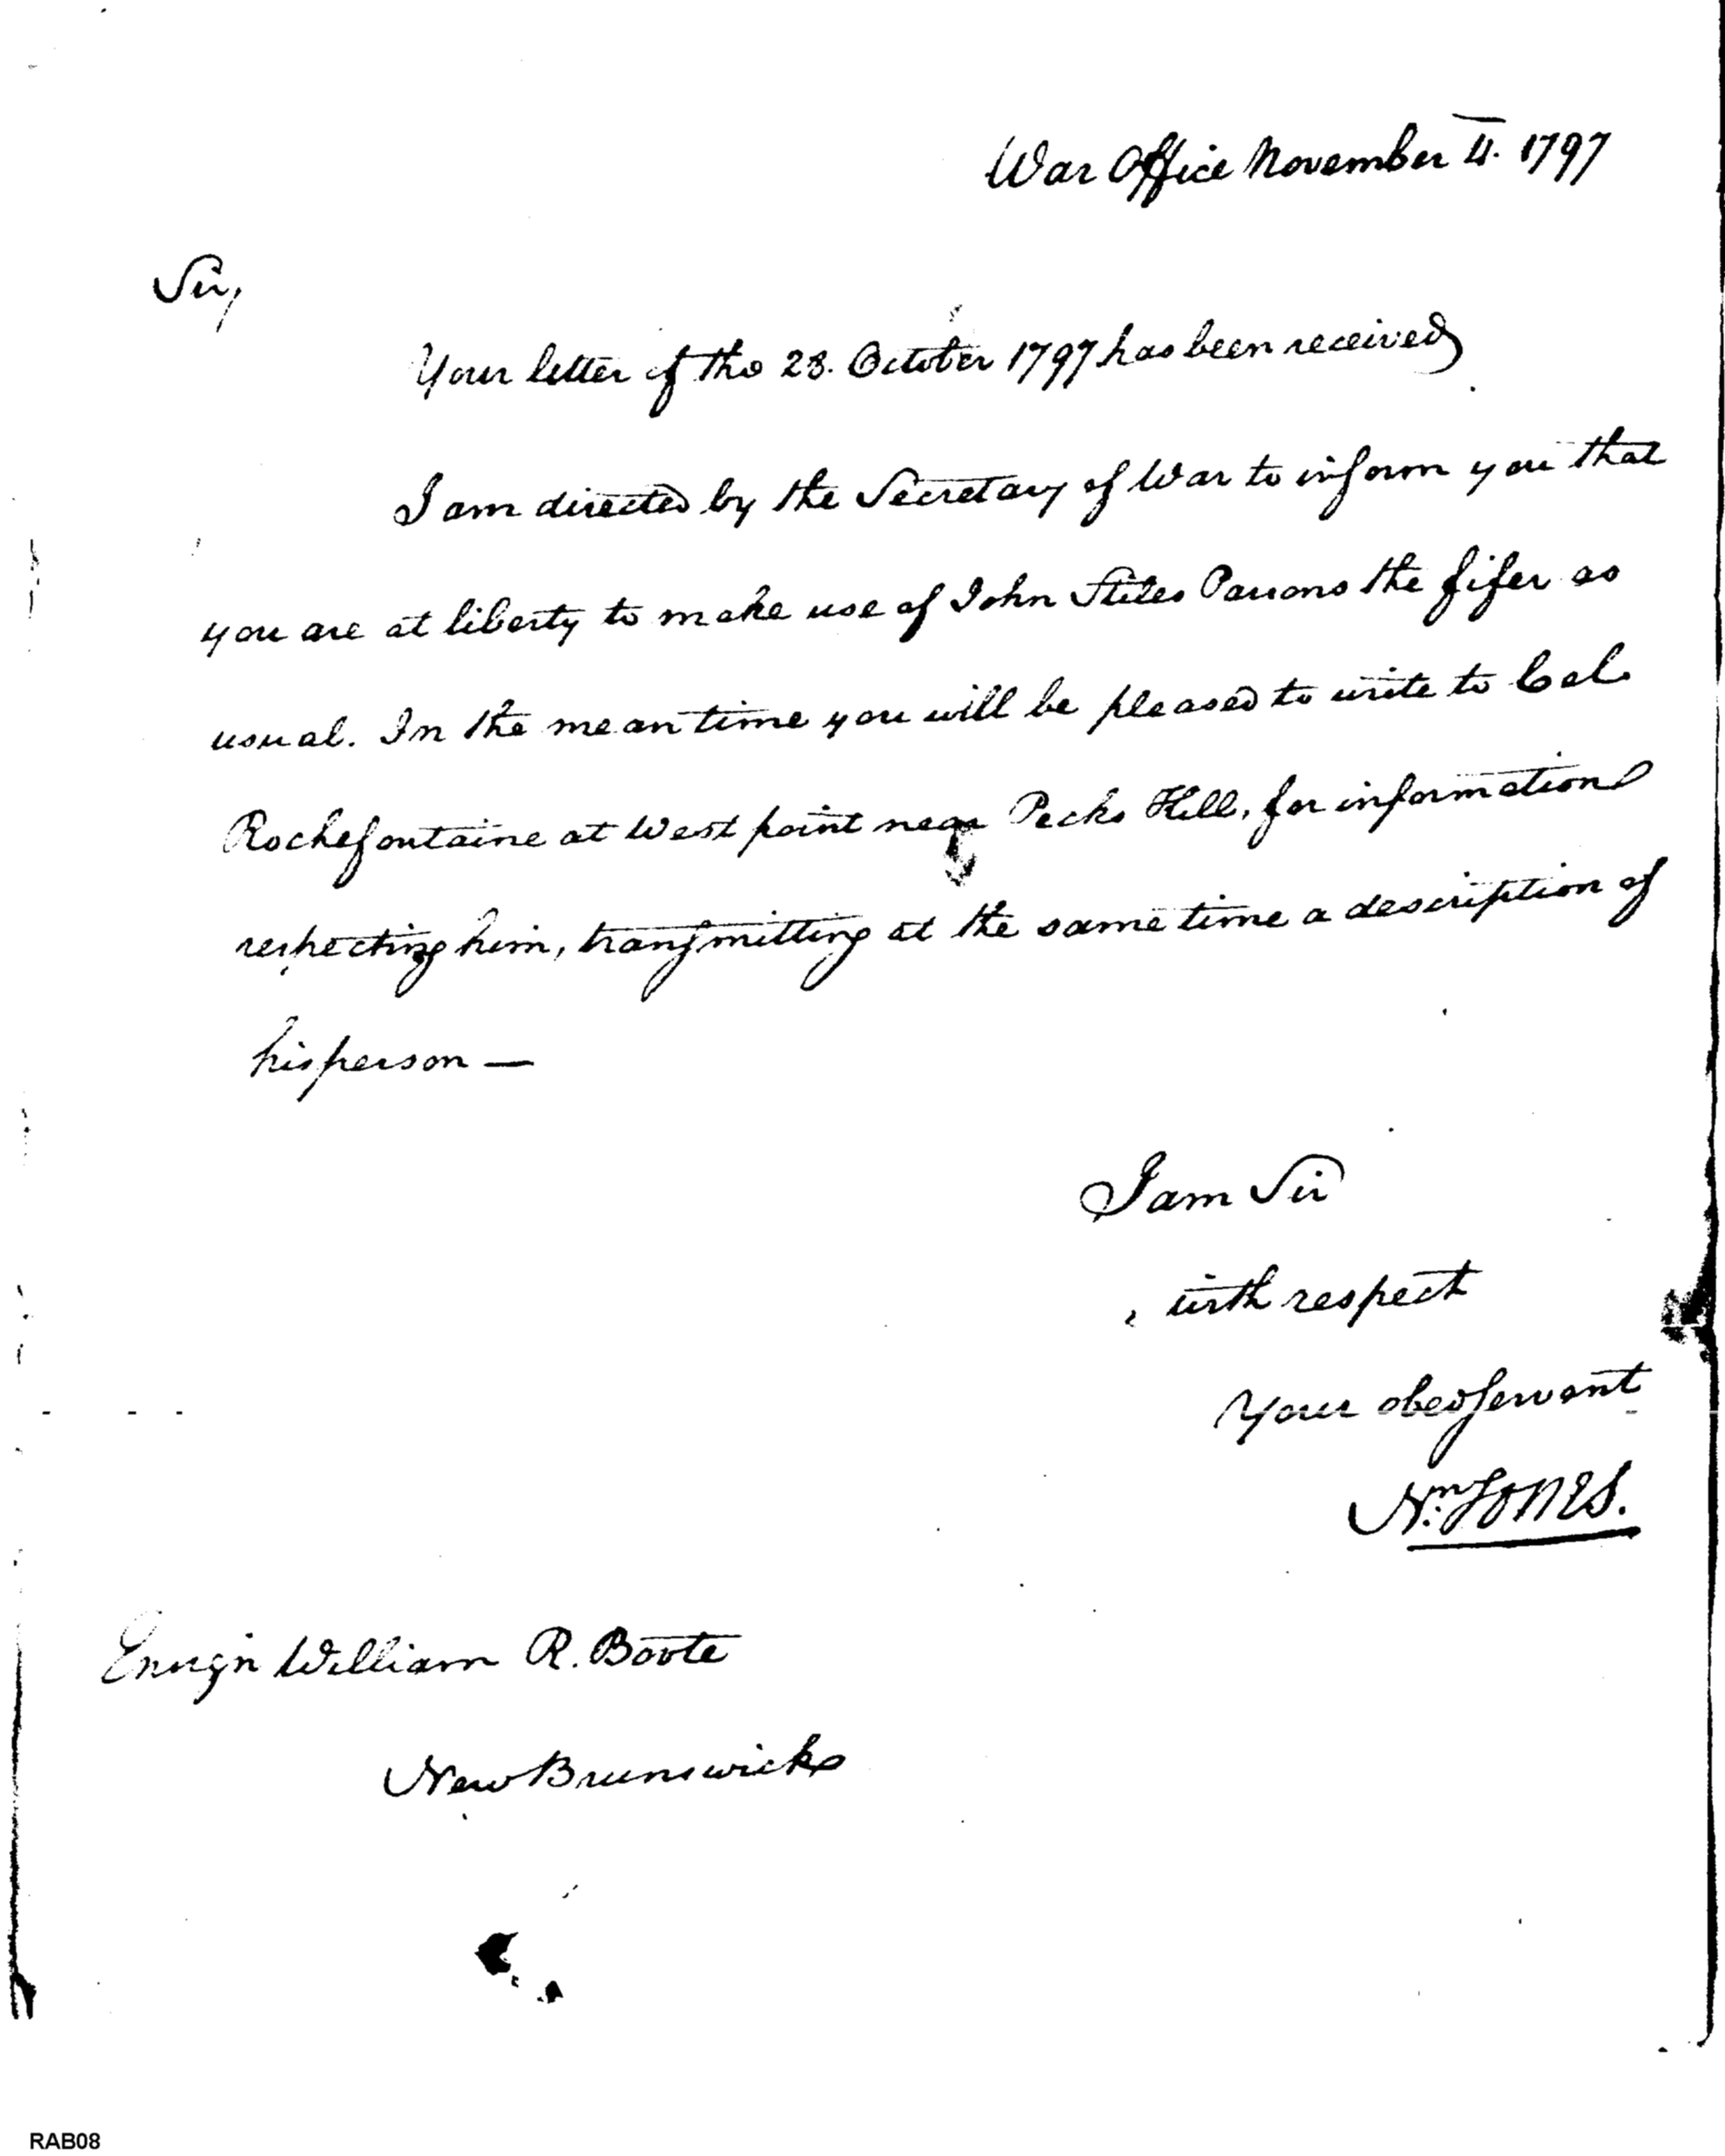 War Office November 4. 1797
Sir,
Your letter of the 28. October 1797 has been received
I am directed by the Secretary of War to inform you that
you are at liberty to make use of John Stiles Parsons the fifer as
usual. In the mean time you will be pleased to write to Col.
Rochefontaine at West point near Pecks Hill, for information
respecting him, transmitting at the same time a description of
his person —
I am Sir
with respect
Your obed servant
Nn. Jones.
Ensign William R. Boote
New Brunswick
RAB08